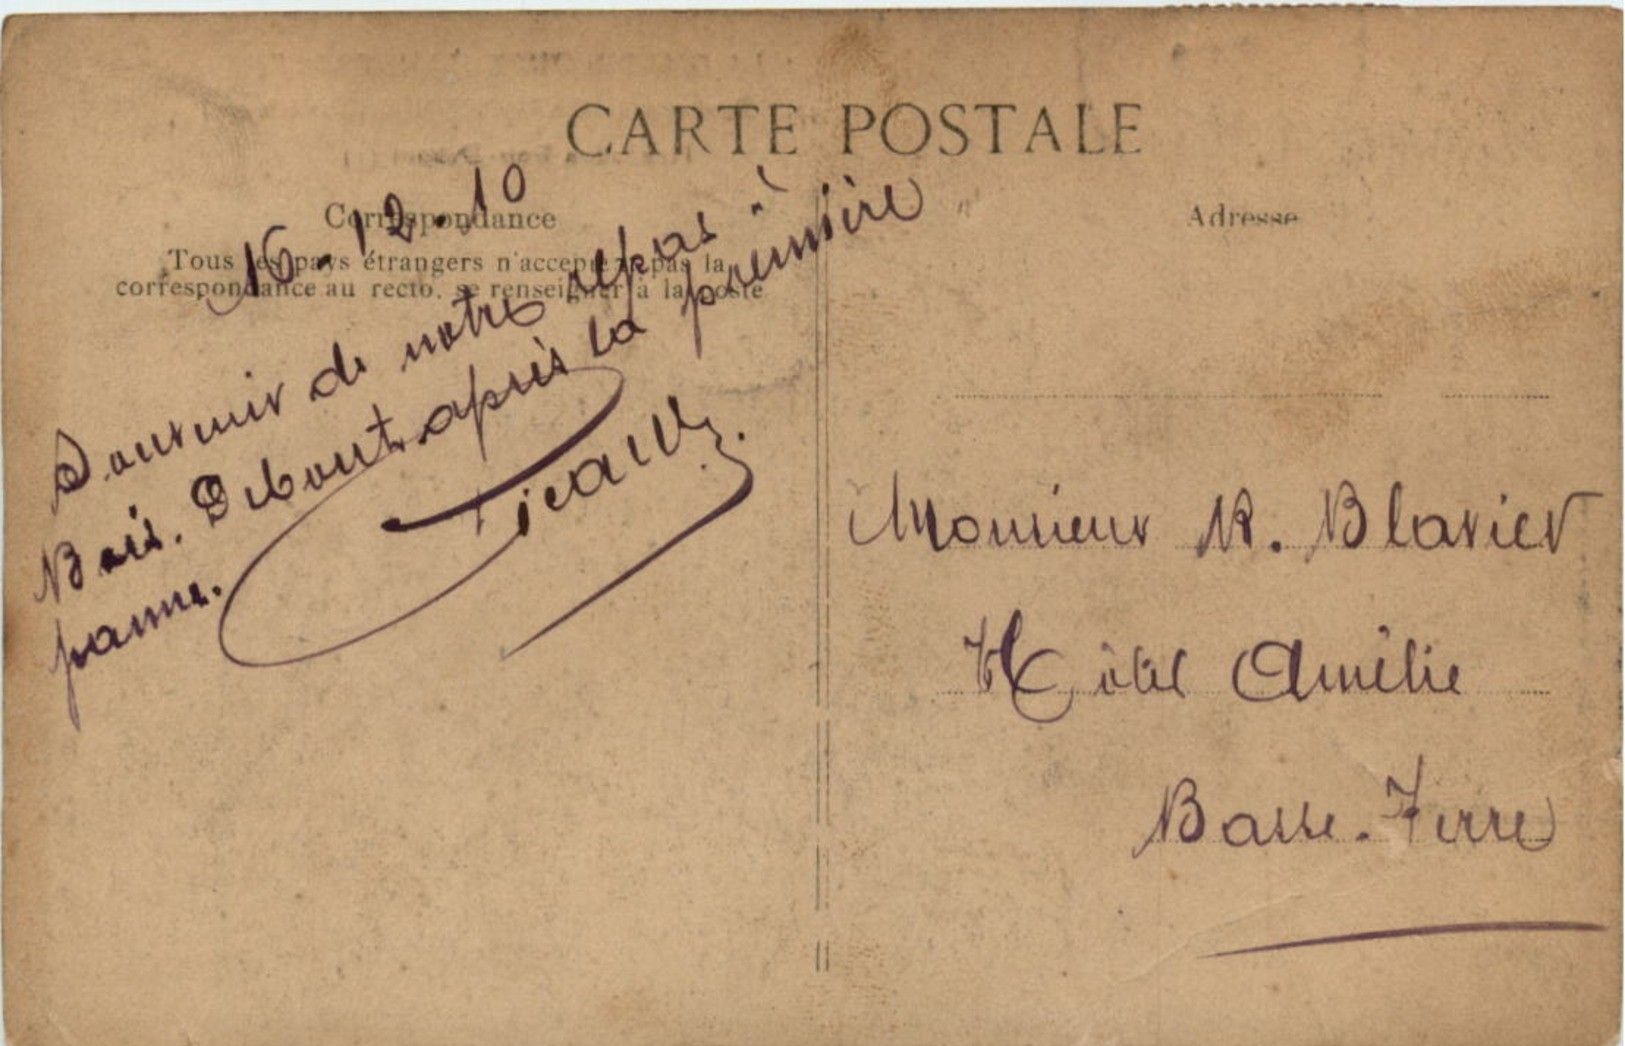 CARTE POSTALE
Correspondance
Tous les pays étrangers n'acceptent pas la
correspondance au recto, se renseigner à la poste
Adresse
16-12-10
Souvenir de notre repas
Debout après la première
panne.
Monsieur R. Blavier
Hôtel Amélie
Basse-Terre